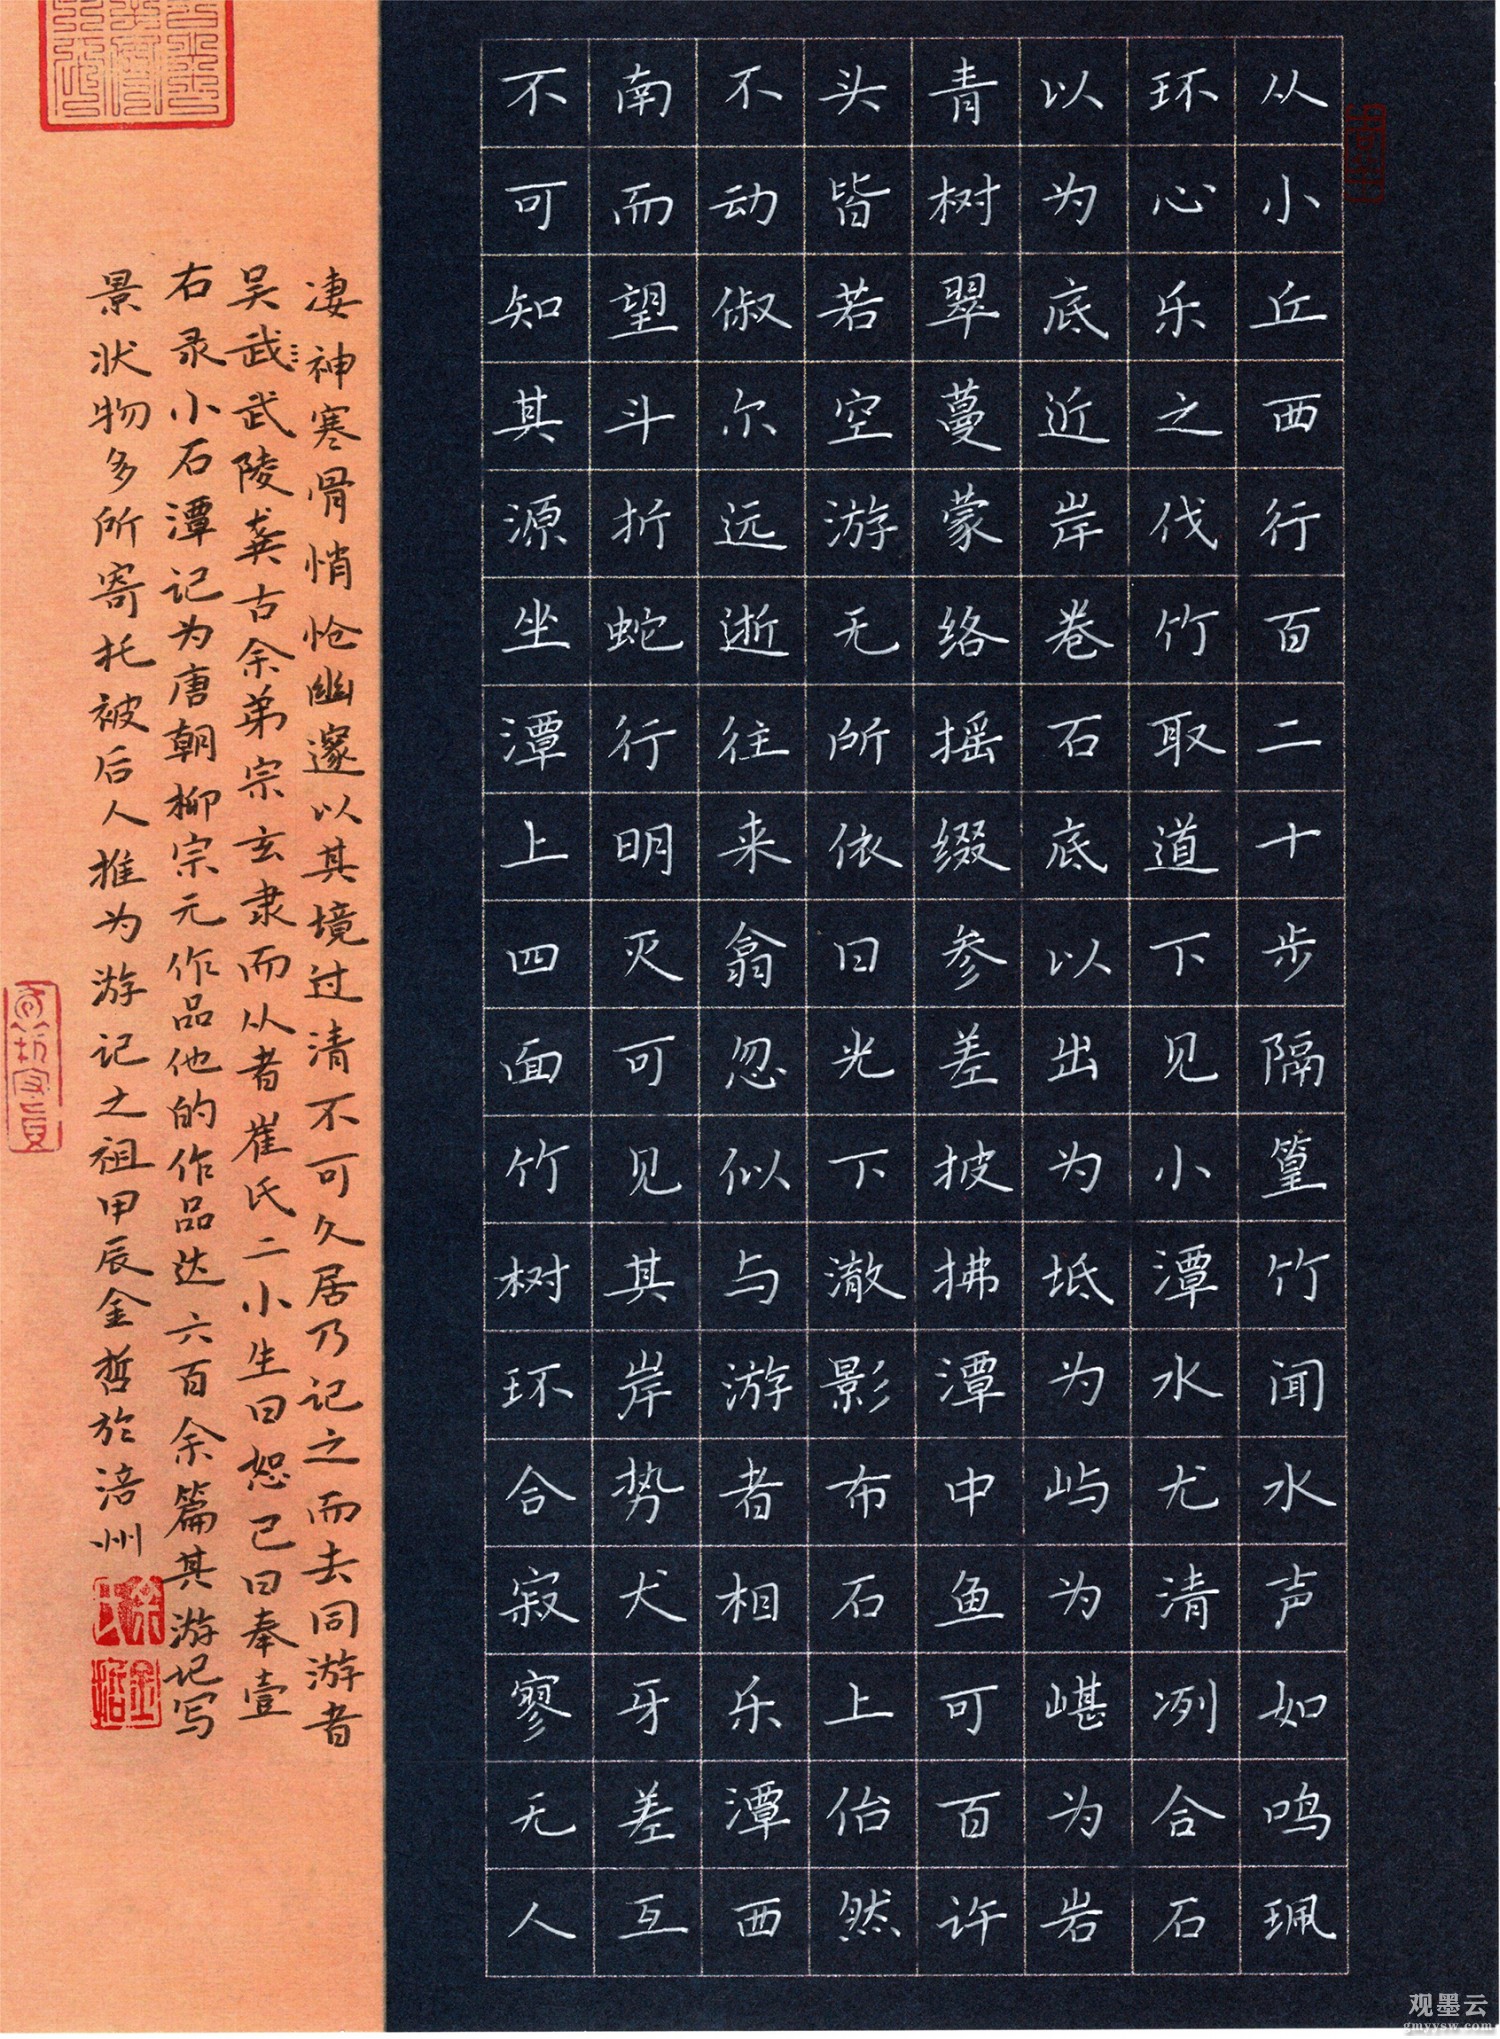 从小丘西行百二十步隔篁竹闻水声如鸣珮
环心乐之伐竹取道下见小潭水尤清冽合石
以为底近岸卷石底以出为坻为屿为嵁为岩
青树翠蔓蒙络摇缀参差披拂潭中鱼可百许
头皆若空游无所依日光下澈影布石上佁然
不动俶尔远逝往来翕忽似与游者相乐潭西
南而望斗折蛇行明灭可见其岸势犬牙差互
不可知其源坐潭上四面竹树环合寂寥无人
凄神寒骨悄怆幽邃以其境过清不可久居乃记之而去同游者
吴武武陵龚古余弟宗玄隶而从者崔氏二小生曰恕己曰奉壹
右录小石潭记为唐朝柳宗元作品他的作品达六百余篇其游记写
景状物多所寄托被后人推为游记之祖甲辰金哲於涪州
观墨云
gmyysw.com